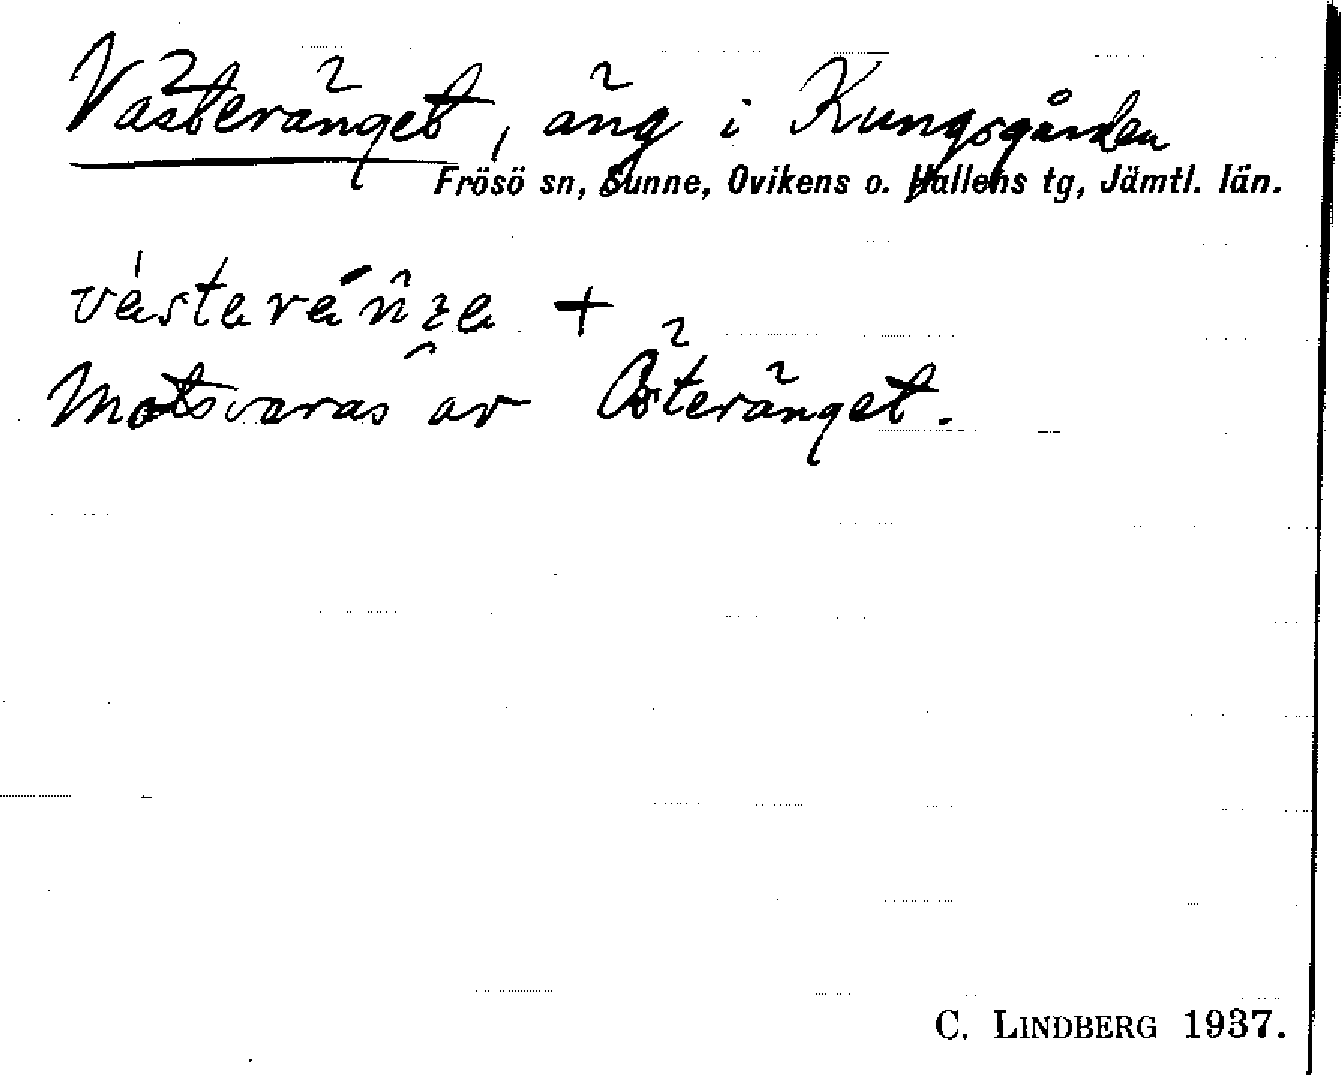 Västeränget, äng i Kungsgården
Frösö sn, Sunne, Ovikens o. Hallens tg, Jämtl. län.
+
Motsvaras av Österänget.
C. LINDBERG 1937.